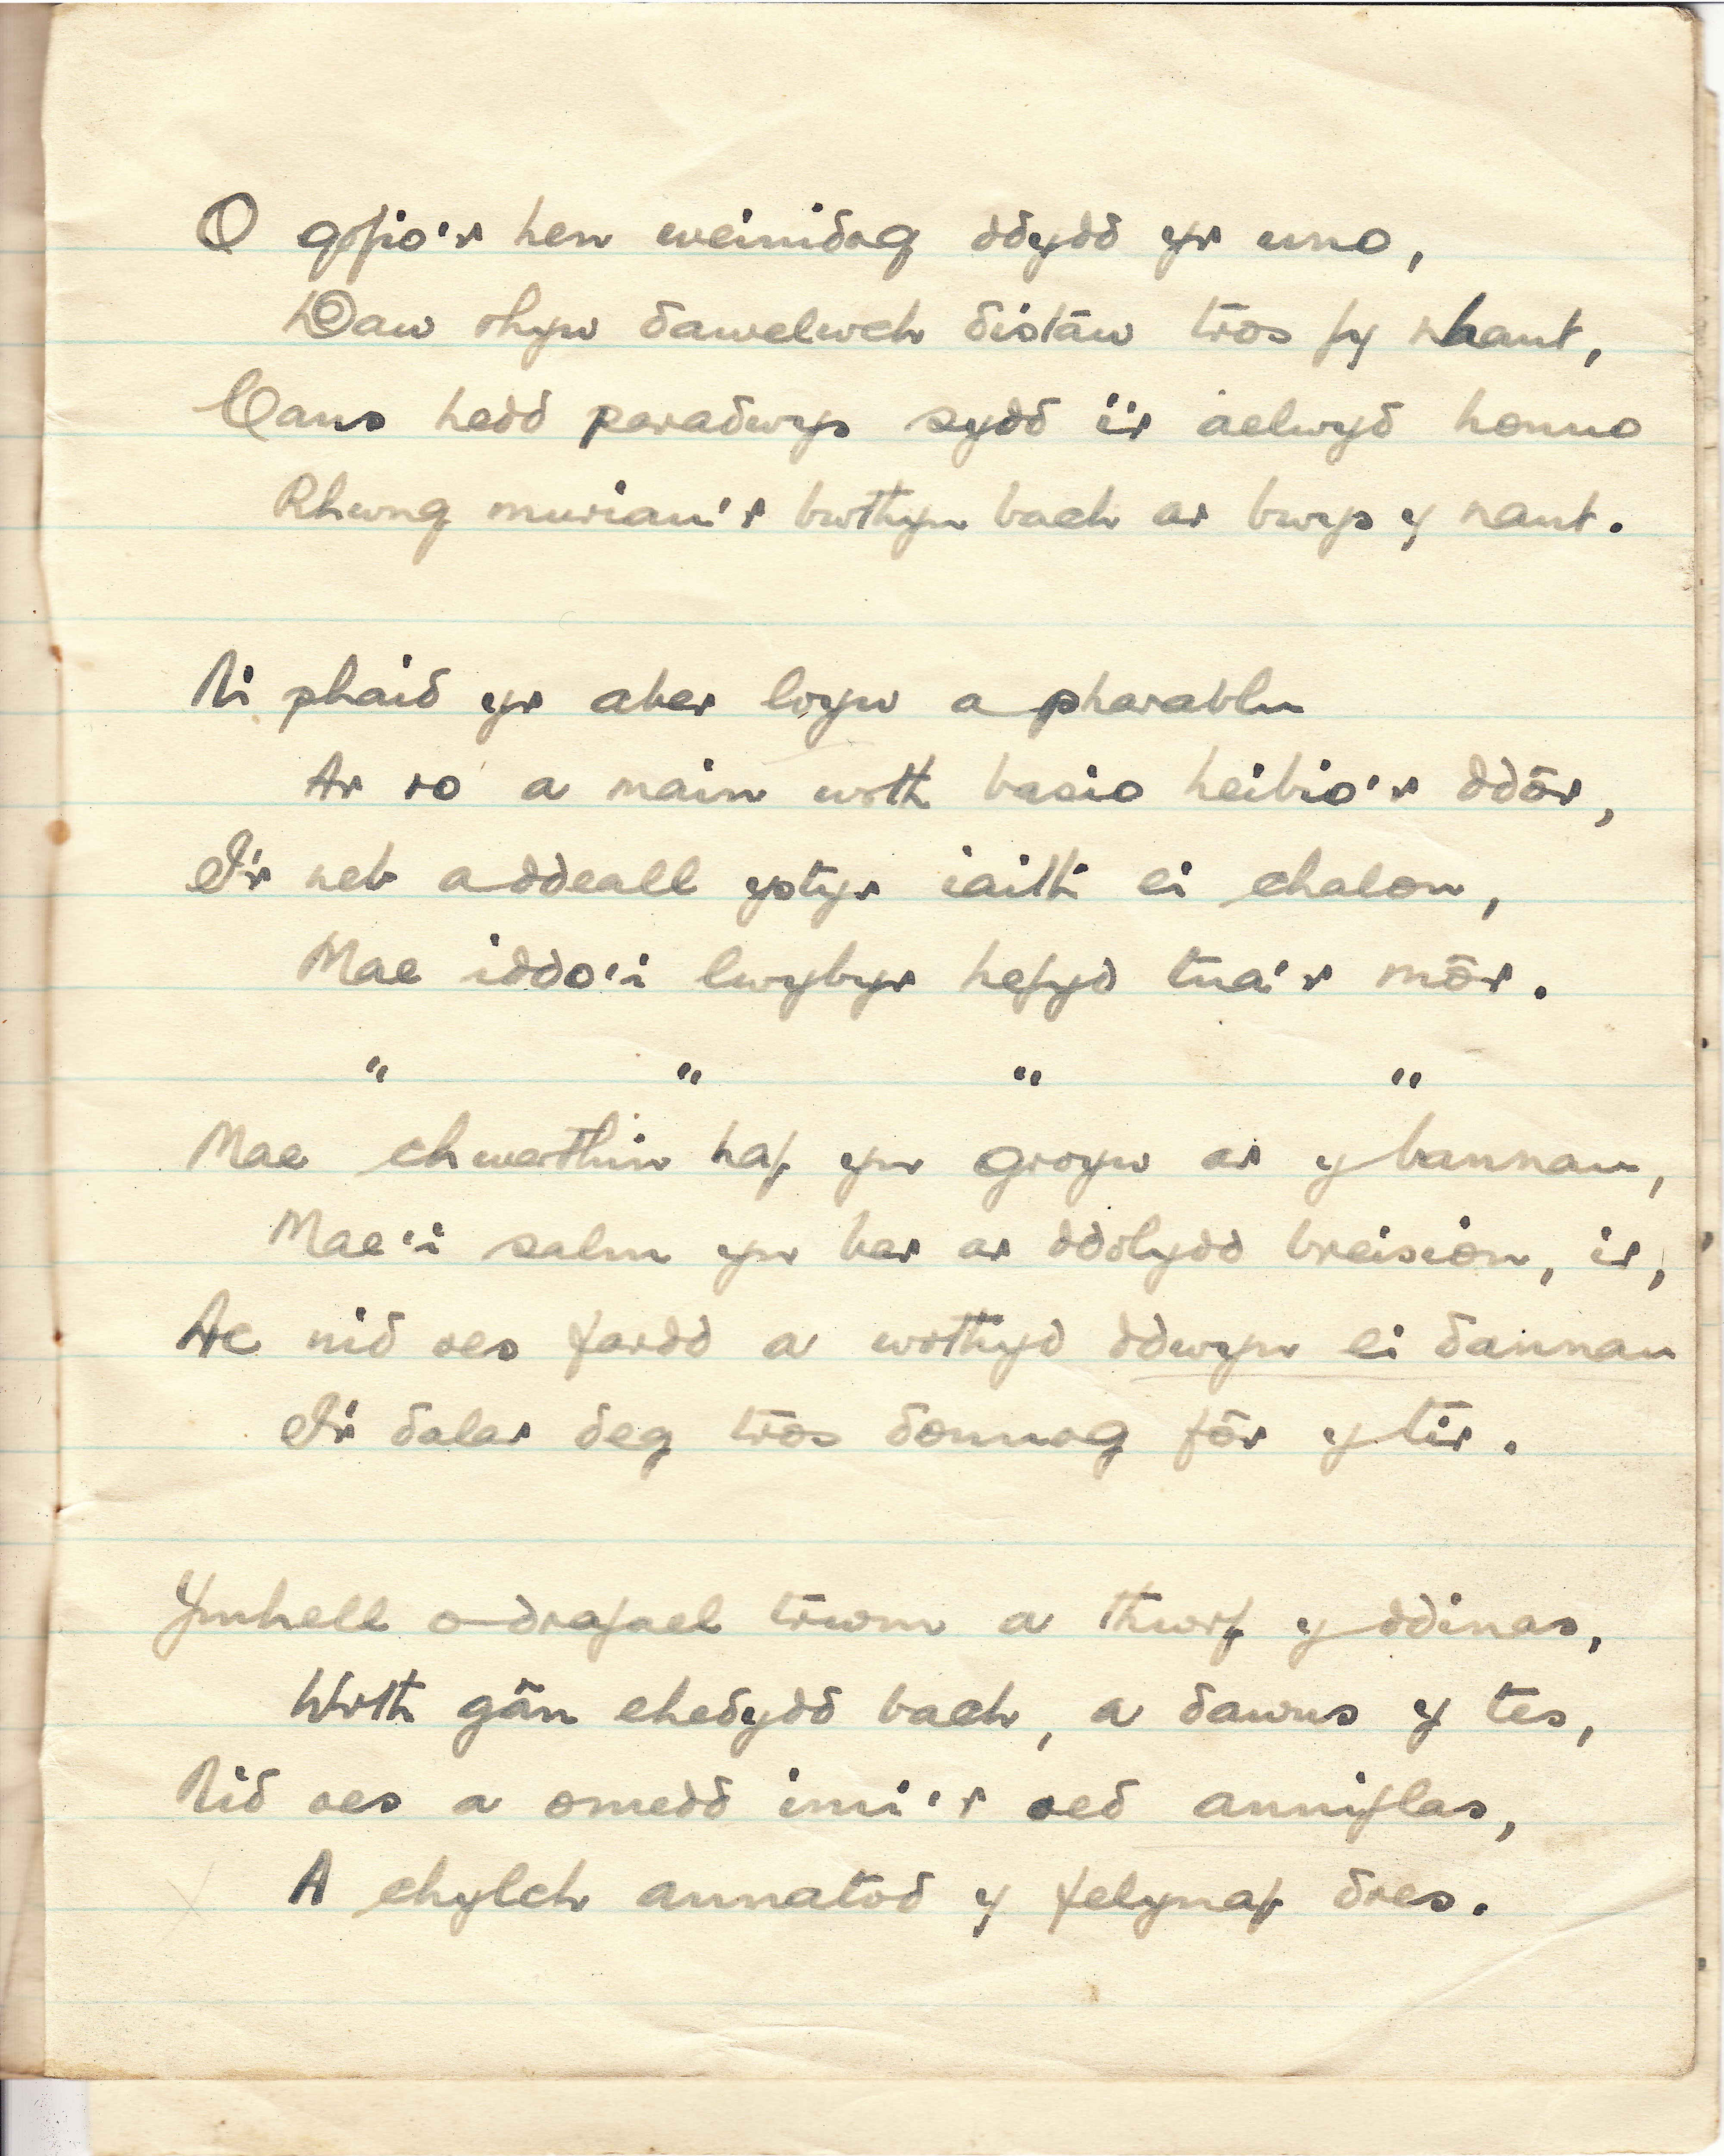 O gofio'r hen weinidog ddydd yr uno,
Daw rhyw dawelwch distaw tros fy nhant,
Cans hedd paradwys sydd i'r aelwyd honno
Rhwng muriau'r bwthyn bach ar bwys y nant.
Ni phaid yr aber loyw a pharablu
Ar ro a main wrth basio heibio'r ddôr,
I'r neb a ddeall ystyr iaith ei chalon,
Mae iddo'i lwybyr hefyd tua'r môr.
" " " "
Mae chwerthin haf yn groyw ar y bannau,
Mae'i salm yn ber ar ddolydd breision, ir,
Ac nid oes fardd a wrthyd ddwyn ei dannau
I'r dalar deg tros donnog fôr y tir.
Ymhell o drafael trwm a thwrf y ddinas,
Wrth gân ehedydd bach, a dawns y tes,
Nid oes a omedd imi'r oed anniflas,
A chylch annatod y felynaf dres.